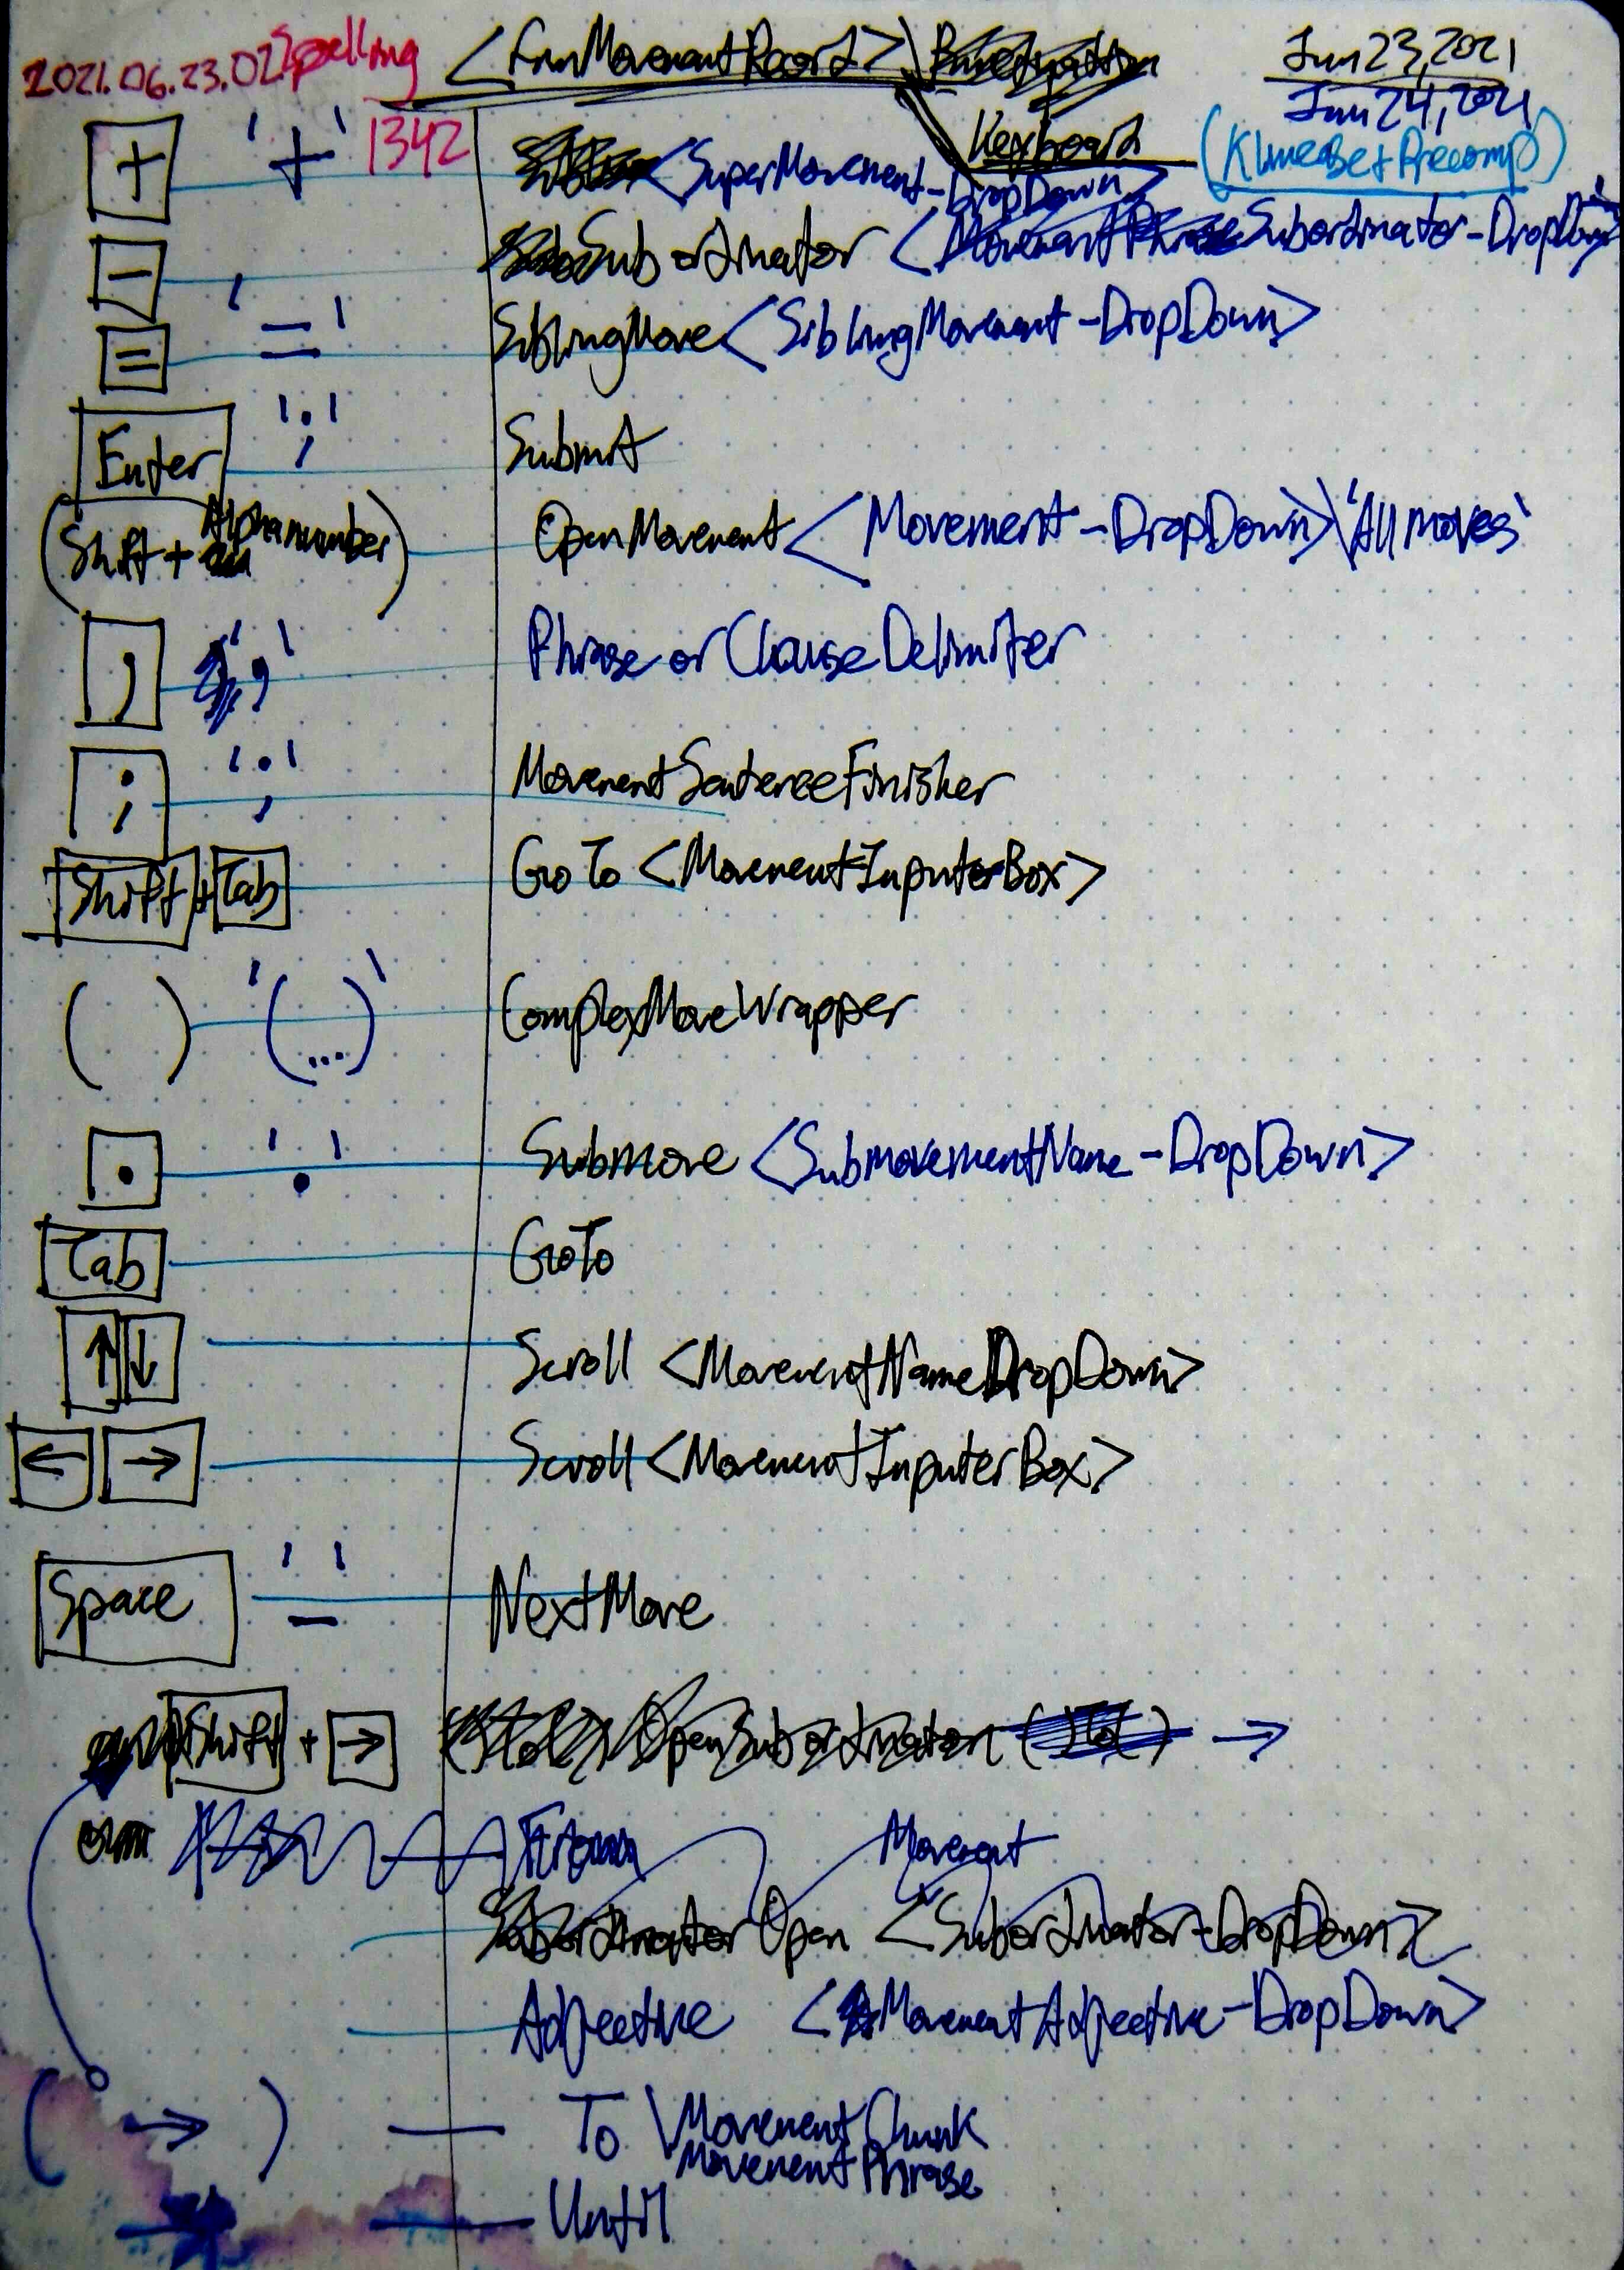 2021.06.23.02 Spelling <FrmMovementRecord>\ Jun 23, 2021
Keyboard Jun 24, 2021
(KlineaBet Precomp)
+ '+' 1342 <SuperMovement-DropDown>
- Subordinator <Subordinator-DropDown>
= '=' SiblingMove <SiblingMovement-DropDown>
Enter ';' Submit
(Shift + Alphanumber) OpenMovement <Movement-DropDown>\'All moves'
, ',' Phrase or Clause Delimiter
; ';' MovementSentenceFinisher
Shift + Tab GoTo <MovementInputerBox>
( ) '(...)' ComplexMoveWrapper
. '.' Submove <SubmovementName-DropDown>
Tab GoTo
↑ ↓ Scroll <MovementNameDropDown>
← → Scroll <MovementInputerBox>
Space '_' NextMove
Shift + → →
Movement
Open <Subordinator-DropDown>
Adjective <MovementAdjective-DropDown>
( → ) — To \MovementChunk
MovementPhrase
— Until